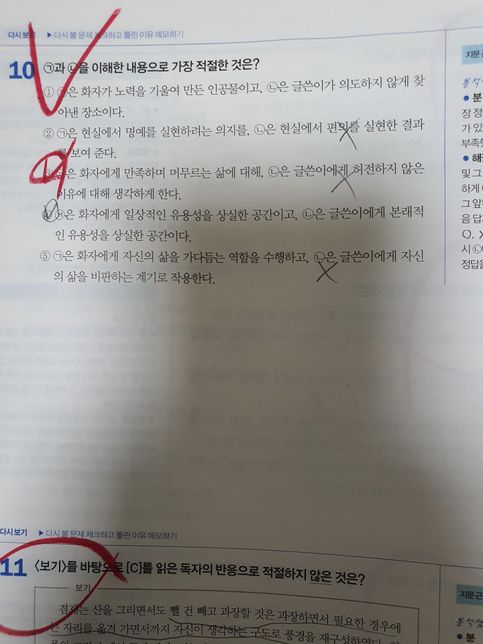 다시 보기 ▶ 다시 볼 문제 체크하고 틀린 이유 메모하기
10 ㉠과 ㉡을 이해한 내용으로 가장 적절한 것은?
① ㉠은 화자가 노력을 기울여 만든 인공물이고, ㉡은 글쓴이가 의도하지 않게 찾
아낸 장소이다.
② ㉠은 현실에서 명예를 실현하려는 의지를, ㉡은 현실에서 편의를 실현한 결과
를 보여 준다.
③ ㉠은 화자에게 만족하며 머무르는 삶에 대해, ㉡은 글쓴이에게 허전하지 않은
이유에 대해 생각하게 한다.
④ ㉠은 화자에게 일상적인 유용성을 상실한 공간이고, ㉡은 글쓴이에게 본래적
인 유용성을 상실한 공간이다.
⑤ ㉠은 화자에게 자신의 삶을 가다듬는 역할을 수행하고, ㉡은 글쓴이에게 자신
의 삶을 비판하는 계기로 작용한다.
지문 근
● 분
장 정
가 있
부족할
● 해
및 그
하게
그 앞
음 답
시
정답을
다시 보기 ▶ 다시 볼 문제 체크하고 틀린 이유 메모하기
11 <보기>를 바탕으로 [C]를 읽은 독자의 반응으로 적절하지 않은 것은?
보기
겸재는 산을 그리면서도 뺄 건 빼고 과장할 것은 과장하면서 필요한 경우에
는 자리를 옮겨 가면서까지 자신이 생각하는 구도로 풍경을 재구성하였다.
지문 근
● 분